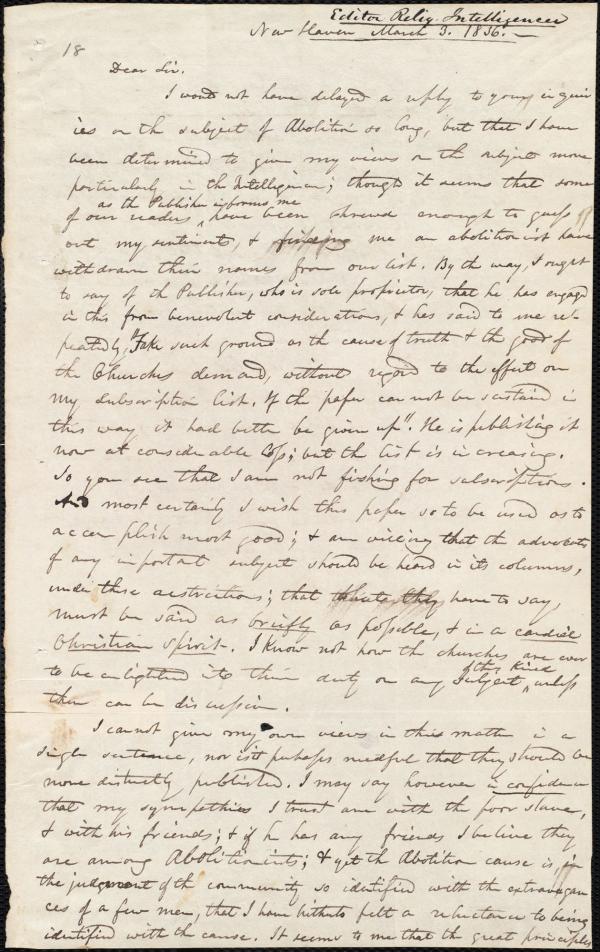 Editor Relig. Intelligencer
New Haven March 3. 1836.
18
Dear Sir.
I would not have delayed a reply to your inquir
ies on the subject of Abolition so long, but that I have
been determined to give my views on the subject more
particularly in the Intelligencer; though it seems that some
as the Publisher informs me
of our readers have been shrewd enough to guess
out my sentiments, & me an abolitionist have
withdrawn their names from our list. By the way, I ought
to say of the Publisher, who is sole proprietor, that he has engaged
in this from benevolent considerations, & has said to me re-
peatedly, "Take such ground as the cause of truth & the good of
the Churches demand, without regard to the effect on
my subscription list. If the paper can not be sustained in
this way it had better be given up". He is publishing it
now at considerable loss; but the list is increasing.
So you see that I am not fishing for subscriptions.
And most certainly I wish this paper so to be used as to
accomplish most good; & am willing that the advocates
of any important subject should be heard in its columns,
under these restrictions; that they have to say,
must be said as briefly as possible, & in a candid
Christian spirit. I know not how the churches are ever
of this kind
to be enlightened into their duty on any subject, unless
there can be discussion.
I cannot give my own views in this matter in a
single sentence, nor is it perhaps needful that they should be
more distinctly published. I may say however in confidence
that my sympathies I trust are with the poor slave,
& with his friends; & if he has any friends I believe they
are among Abolitionists; & yet the Abolition cause is, in
the judgment of the community so identified with the extravagan
ces of a few men, that I have hitherto felt a reluctance to being
identified with the cause. It seems to me that the great principles